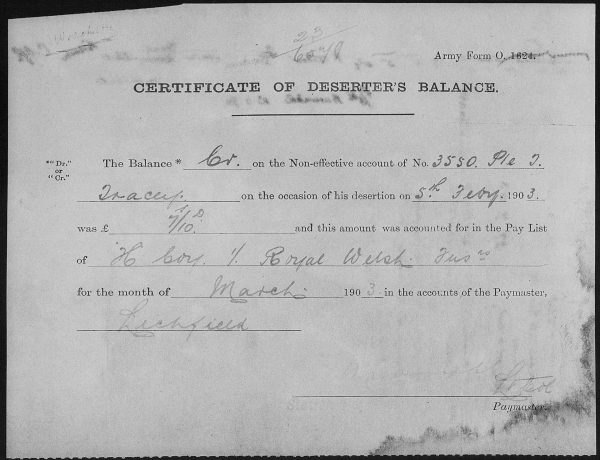 23
Army Form O. 1624.
CERTIFICATE OF DESERTER'S BALANCE.
*"Dr." or "Cr."
The Balance * Cr. on the Non-effective account of No. 3550. Pte J.
Tracey. on the occasion of his desertion on 5th Feby. 1903.
was £ and this amount was accounted for in the Pay List
of "H" Coy 1/. Royal Welsh. Fusrs
for the month of March. 1903 in the accounts of the Paymaster,
Lichfield
Paymaster.